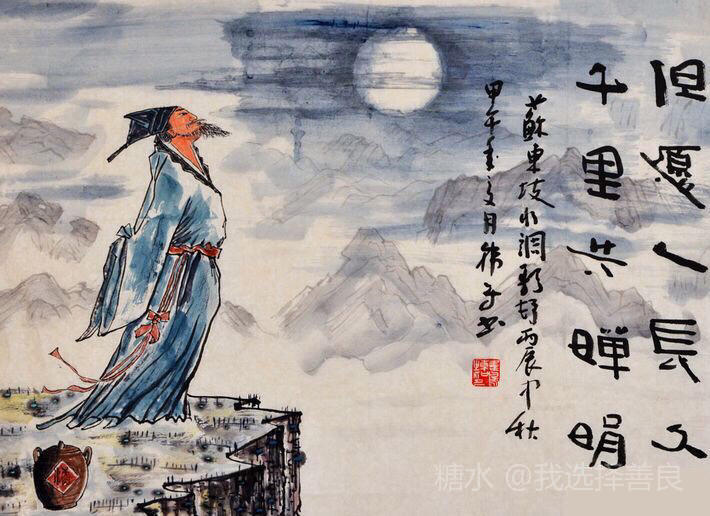 但愿人長久
千里共嬋娟
蘇東坡水調歌頭丙辰中秋
甲午
月
書
酒
糖水 @我选择善良